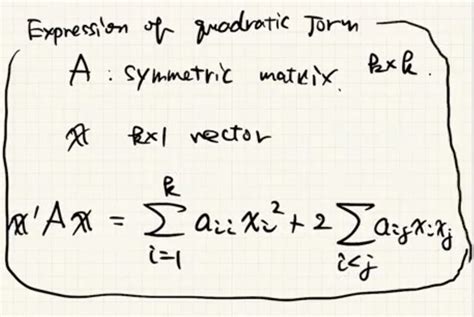 Expression of quadratic Form
A : symmetric matrix. k×k.
x k×1 vector
x'Ax = \sum_{i=1}^{k} a_{ii} x_i^2 + 2 \sum_{i<j} a_{ij} x_i x_j